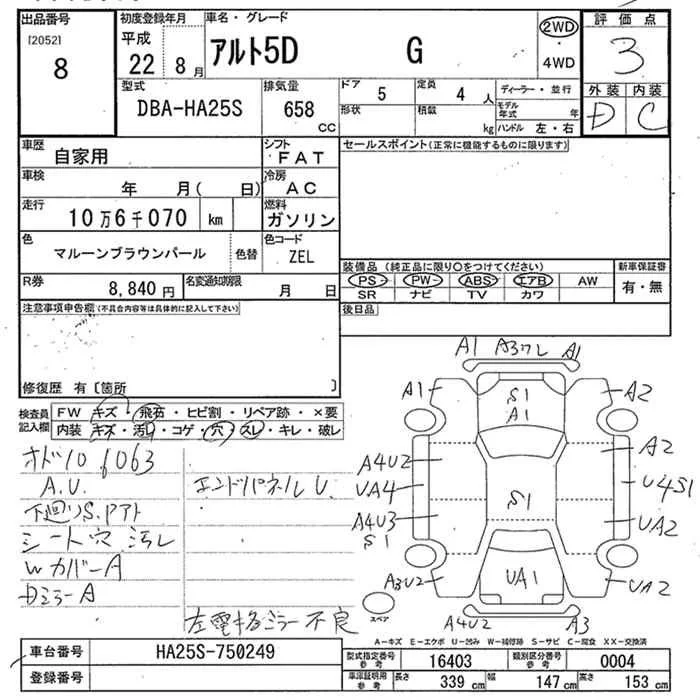 出品番号 初度登録年月 車名・グレード 2WD 評価点
[2052] 平成 アルト5D G 4WD 3
8 22 8月 外装 内装
型式 排気量 ドア 5 定員 4人 ディーラー・並行 D C
DBA-HA25S 658 CC 形状 積載 kg モデル年式 年
ハンドル 左・右
車歴 自家用 シフト FAT セールスポイント(正常に機能するものに限ります)
車検 年 月( 日) 冷房 AC
走行 10万6千070 km 燃料 ガソリン
色 マルーンブラウンパール 色替 色コード ZEL
装備品(純正品に限り○をつけてください) 新車保証書
R券 8,840円 名変通知期限 月 日 PS PW ABS エアB AW 有・無
SR ナビ TV カワ
注意事項申告欄(不具合内容等は具体的に記入して下さい) 後日品
修復歴 有〔箇所 〕
検査員記入欄 FW キズ・飛石・ヒビ割・リペア跡・×要
内装 キズ・汚れ・コゲ・穴・スレ・キレ・破レ
オドノ106063
A.U. エンドパネルU.
下廻りS.アト
シート穴 汚レ
Wカバー A
Dミラー A
左電格ミラー不良
A1 A3ワレ A1
A1 S1 A2
A1
A4U2 A2
UA4 S1 U4S1
A4U3 UA2
S1
A3U2 UA1 UA2
スペア A4U2 A3
A-キズ E-エクボ U-凹み W-補修跡 S-サビ C-腐食 XX-交換済
車台番号 HA25S-750249 型式指定番号 参考 16403 類別区分番号 参考 0004
登録番号 車庫証明用 参考 長さ 339 cm 幅 147 cm 高さ 153 cm